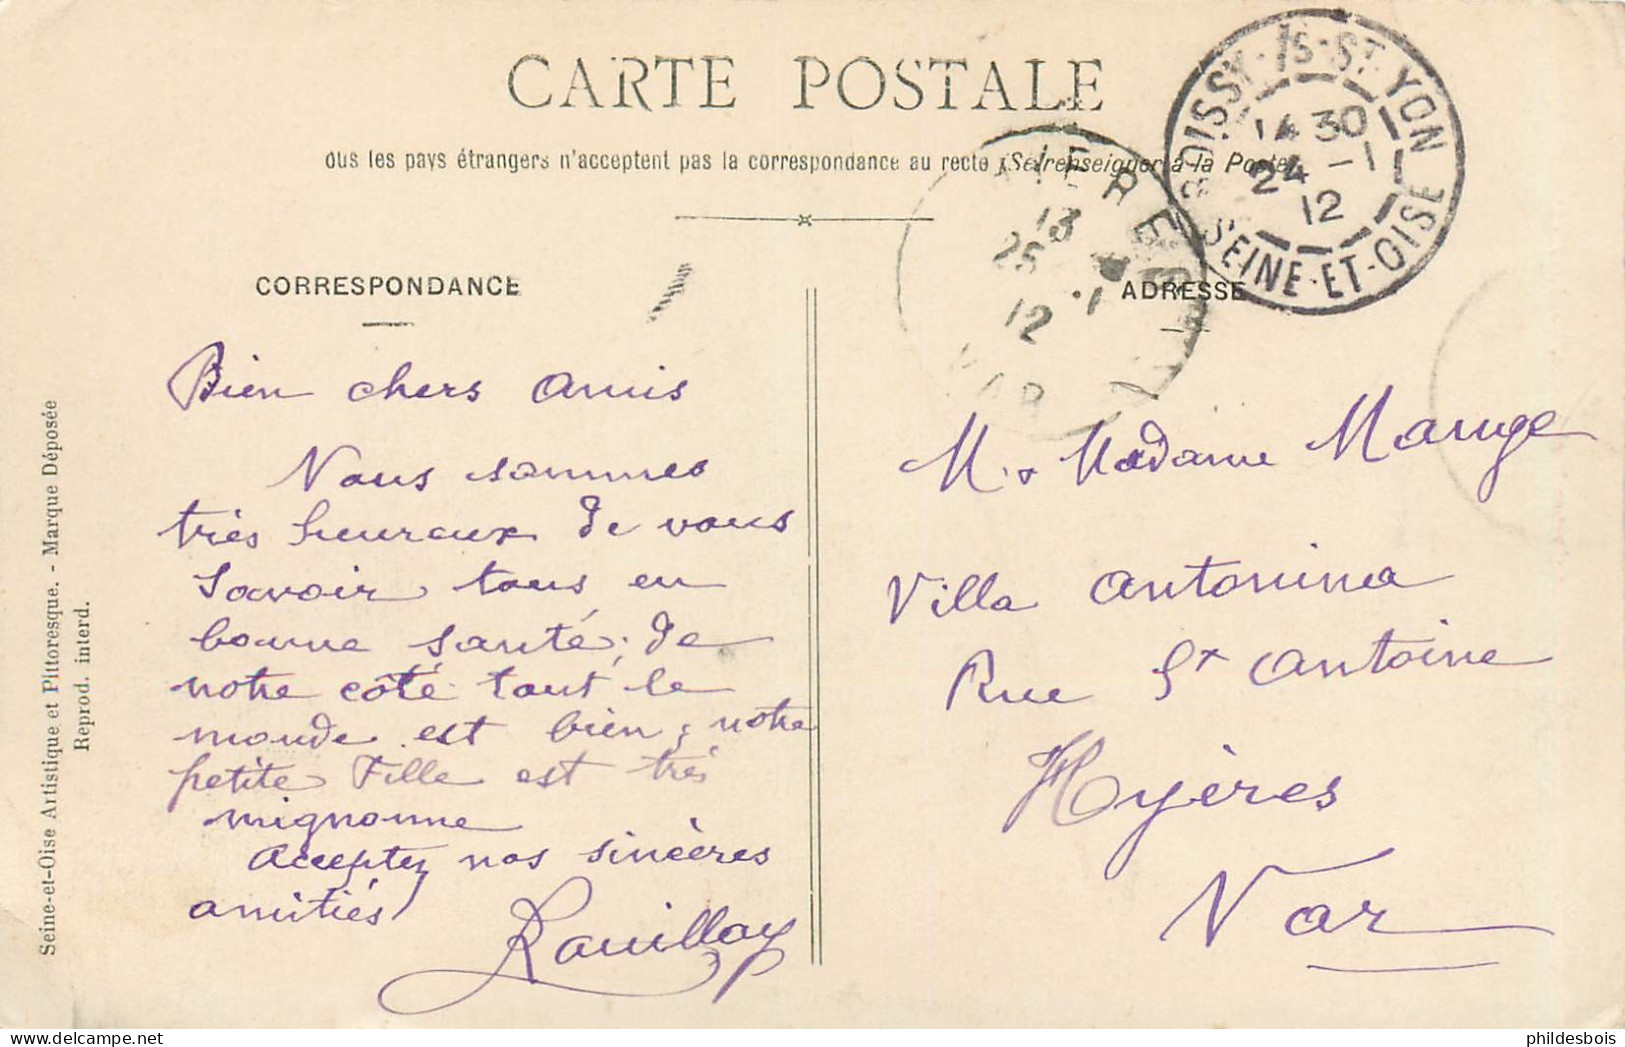 CARTE POSTALE
ous les pays étrangers n'acceptent pas la correspondance au recto (Se renseigner à la Poste
BOISSY-Is-ST-YON
14 30
24 -1
12
SEINE-ET-OISE
HYERES
13
25 -1
12
VAR
CORRESPONDANCE
Bien chers amis
Nous sommes
très heureux de vous
savoir tous en
bonne santé; de
notre côté tout le
monde est bien; notre
petite Fille est très
mignonne
Acceptez nos sincères
amitiés
Rouillay
ADRESSE
M. & Madame Mauge
Villa Antonina
Rue St Antoine
Hyères
Var
Seine-et-Oise Artistique et Pittoresque. - Marque Déposée
Reprod. interd.
phildesbois